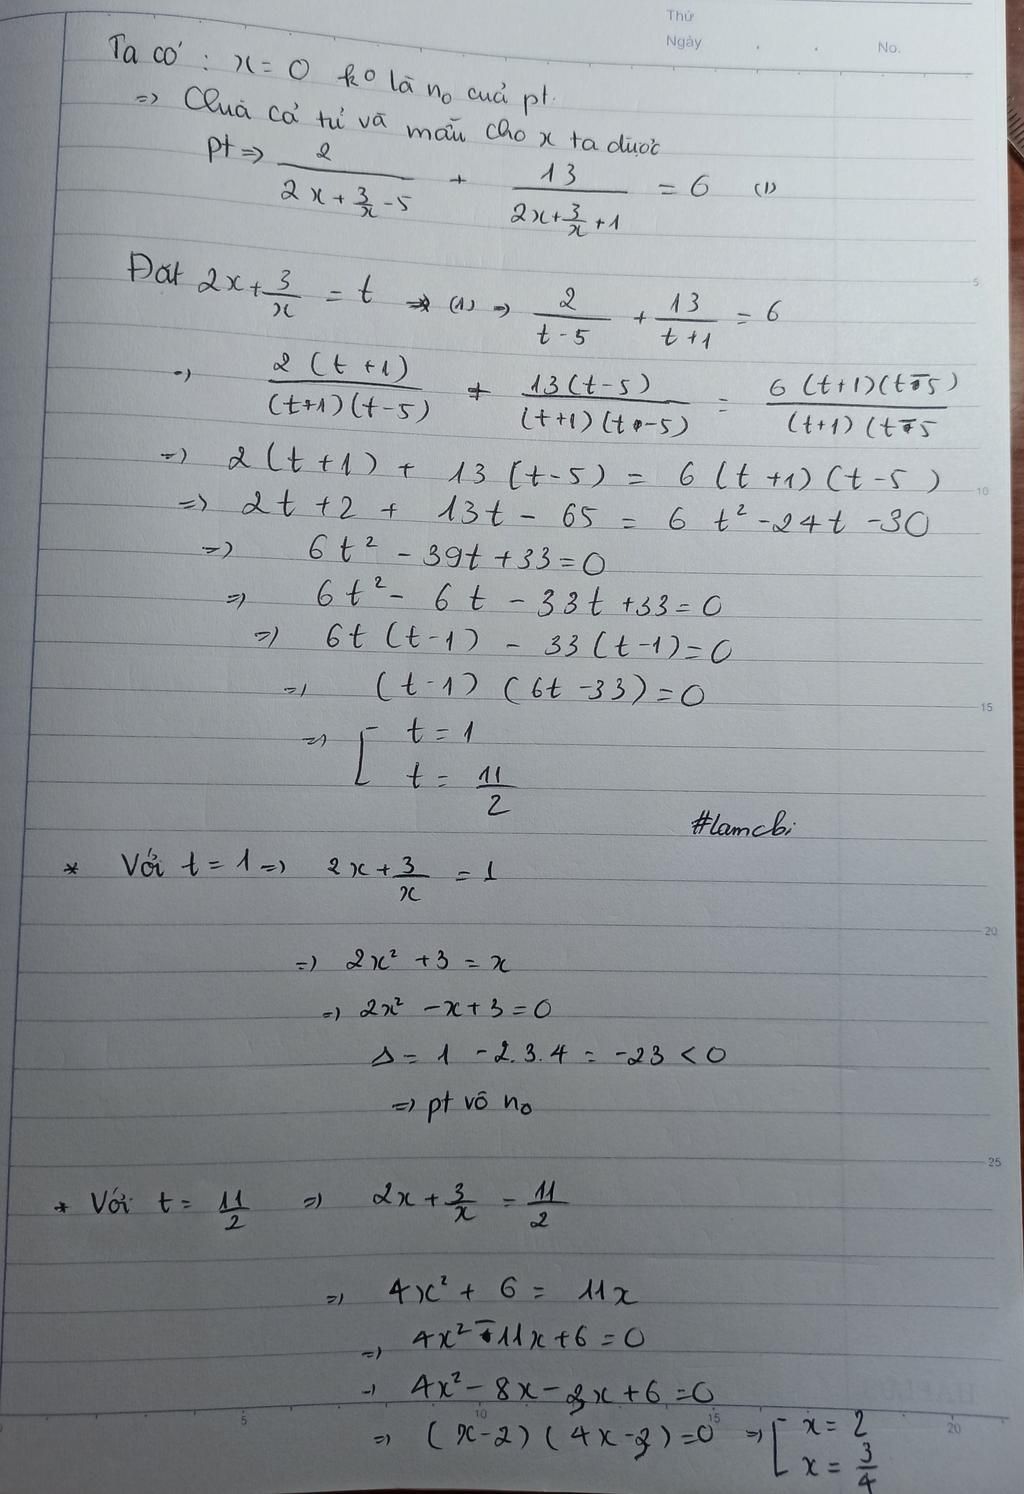 Thứ
Ngày . . No.
Ta có : x = 0 ko là no cuả pt.
=> Chia cả tử và mẫu cho x ta được
pt => 2/(2x + 3/x - 5) + 13/(2x + 3/x + 1) = 6 (1)
Đặt 2x + 3/x = t => (1) => 2/(t - 5) + 13/(t + 1) = 6
=> 2(t + 1)/((t+1)(t-5)) + 13(t-5)/((t+1)(t-5)) = 6(t+1)(t-5)/((t+1)(t-5
=> 2(t+1) + 13(t-5) = 6(t+1)(t-5)
=> 2t + 2 + 13t - 65 = 6t² - 24t - 30
=> 6t² - 39t + 33 = 0
=> 6t² - 6t - 33t + 33 = 0
=> 6t(t-1) - 33(t-1) = 0
=> (t-1)(6t-33) = 0
=> [ t = 1
t = 11/2
#lamcbi
* Với t = 1 => 2x + 3/x = 1
=> 2x² + 3 = x
=> 2x² - x + 3 = 0
Δ = 1 - 2.3.4 = -23 < 0
=> pt vô no
* Với t = 11/2 => 2x + 3/x = 11/2
=> 4x² + 6 = 11x
=> 4x² - 11x + 6 = 0
=> 4x² - 8x - 3x + 6 = 0
=> (x-2)(4x-3) = 0 => [ x = 2
x = 3/4
5
10
15
20
25
5 10 15 20